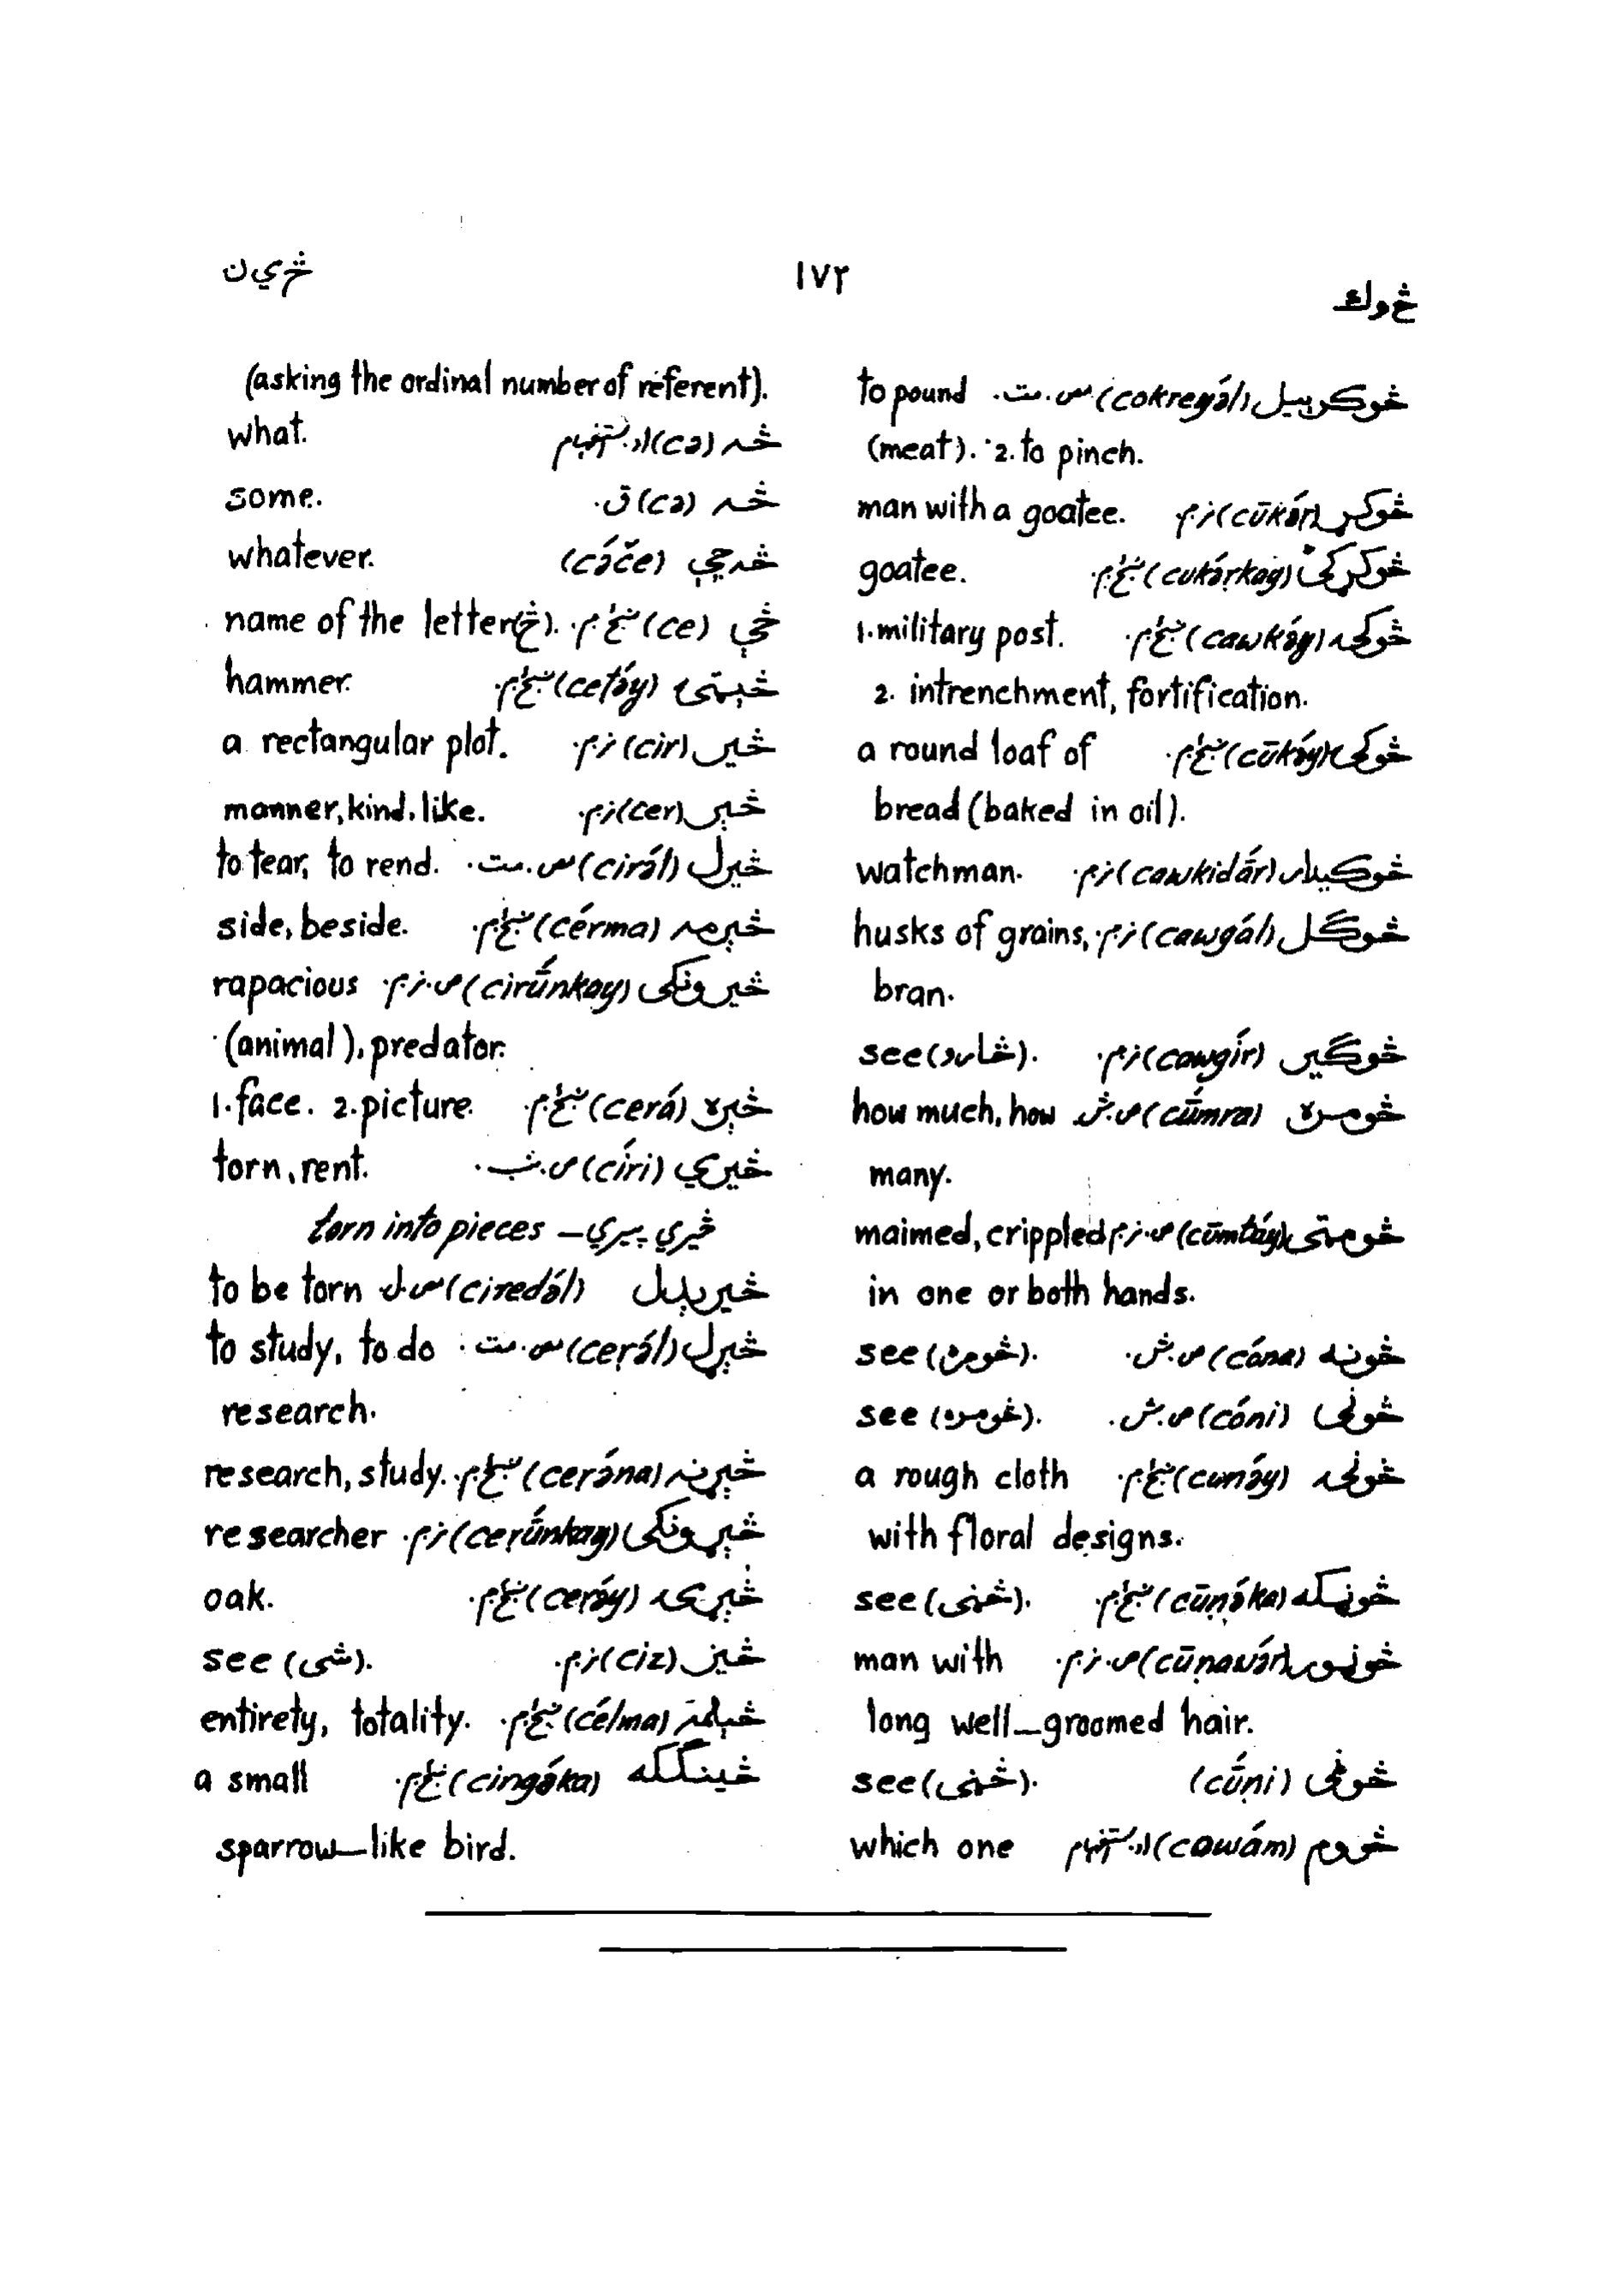 څوک
۱۷۲
څ ي ن
څوکرېيل (cokreyə́l) to pound
(meat). 2. to pinch.
څوکړ (cūkə́ṛ) man with a goatee.
څوکړکۍ (cukə́ṛkəy) goatee.
څوکۍ (cawkə́y) 1. military post.
2. intrenchment, fortification.
څوکۍ (cūkə́y) a round loaf of
bread (baked in oil).
څوکیدار (cawkidā́r) watchman.
څوګل (cawgál) husks of grains,
bran.
څوګیر (cawgír) see (څارو).
څومره (cū́mra) how much, how
many.
څومتی (cūmtáy) maimed, crippled
in one or both hands.
څونه (cóna) see (څومره).
څونی (cóni) see (څومره).
څونۍ (cunə́y) a rough cloth
with floral designs.
څوڼکه (cūṇə́ka) see (څڼی).
څوڼور (cūṇawə́r) man with
long well-groomed hair.
څوڼی (cū́ṇi) see (څڼی).
څووم (cowám) which one
(asking the ordinal number of referent).
څه (cə) what.
څه (cə) ق. some.
څه‌چې (cə́če) whatever.
څې (ce) name of the letter (څ).
څېټۍ (ceṭə́y) hammer.
څیر (cir) a rectangular plot.
څېر (cer) manner, kind, like.
څیرل (cirə́l) to tear, to rend.
څېرمه (cérma) side, beside.
څیرونکی (cirū́nkay) rapacious
(animal), predator.
څېره (cerá) 1. face. 2. picture.
څیري (círi) torn, rent.
څیري پیري – torn into pieces
څیرېدل (ciredə́l) to be torn
څېړل (ceṛə́l) to study, to do
research.
څېړنه (ceṛə́na) research, study.
څېړونکی (ceṛū́nkay) researcher
څېړۍ (ceṛə́y) oak.
څیز (ciz) see (شی).
څېلمه (célma) entirety, totality.
څینګکه (cingə́ka) a small
sparrow-like bird.